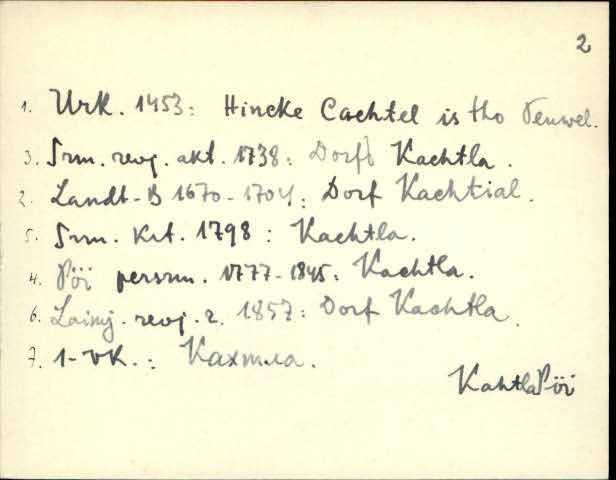 2
1. Urk. 1453: Hincke Cachtel is tho
3. Srm. revj. akt. 1738: Dorf Kachtla.
2. Landt-B 1670-1704: Dorf Kachtial.
5. Srm. Krt. 1798: Kachtla.
4. Pöi persrm. 1777-1845: Kachtla.
6. revj. r. 1857: Dorf Kachtla.
7. 1-VK.: Кахтла.
Kahtla Pöi